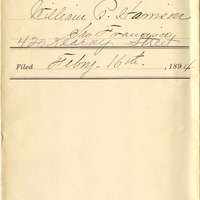 William P. Harrison
San Francisco
420 Kearny Street
Filed Febry. 16th. 1894